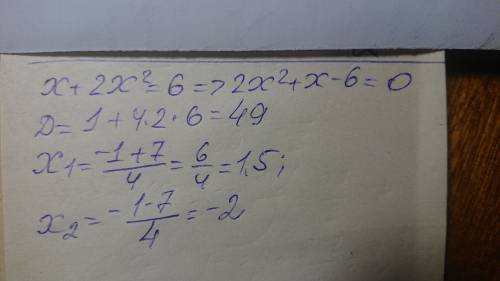 x + 2x² = 6 => 2x² + x - 6 = 0
D = 1 + 4·2·6 = 49
x₁ = (-1+7)/4 = 6/4 = 1,5;
x₂ = (-1-7)/4 = -2